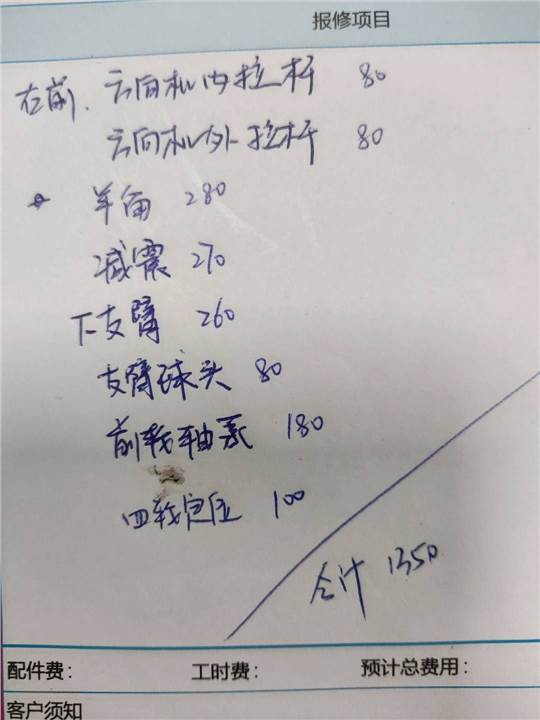 报修项目
右前. 方向机内拉杆 80
方向机外拉杆 80
羊角 280
减震 270
下支臂 260
支臂球头 80
前轮轴承 180
四轮定位 100
合计 1350
配件费: 工时费: 预计总费用:
客户须知